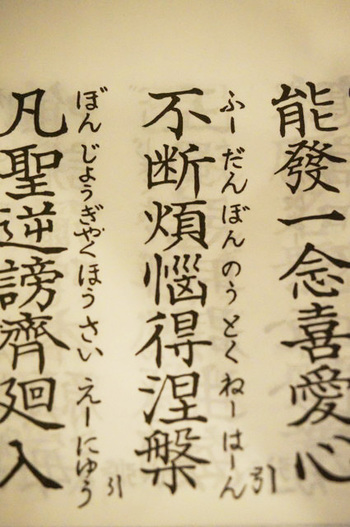 能發一念喜愛心
ふーだんぼんのうとくねーはーん引
不断煩惱得涅槃
ぼんじょうぎゃくほうさいえーにゅう引
凡聖逆謗齊廻入